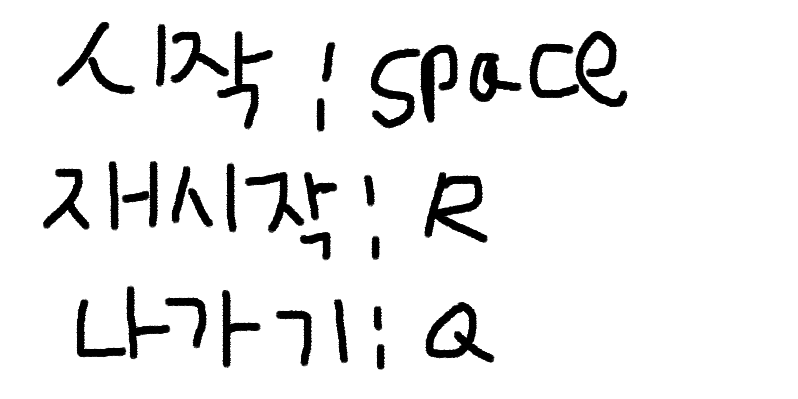 시작 : space
재시작 : R
나가기 : Q